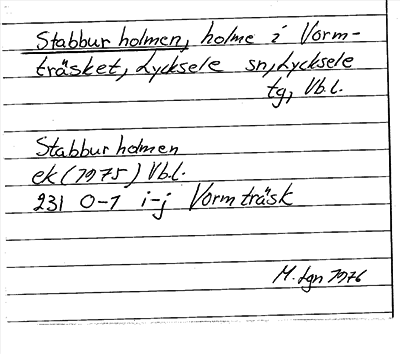 Stabburholmen, holme i Vorm-
träsket, Lycksele sn, Lycksele
tg, Vb.l.
Stabburholmen
ek (1975) Vb.l.
231 0-1 i-j Vormträsk
M. Lgn 1976